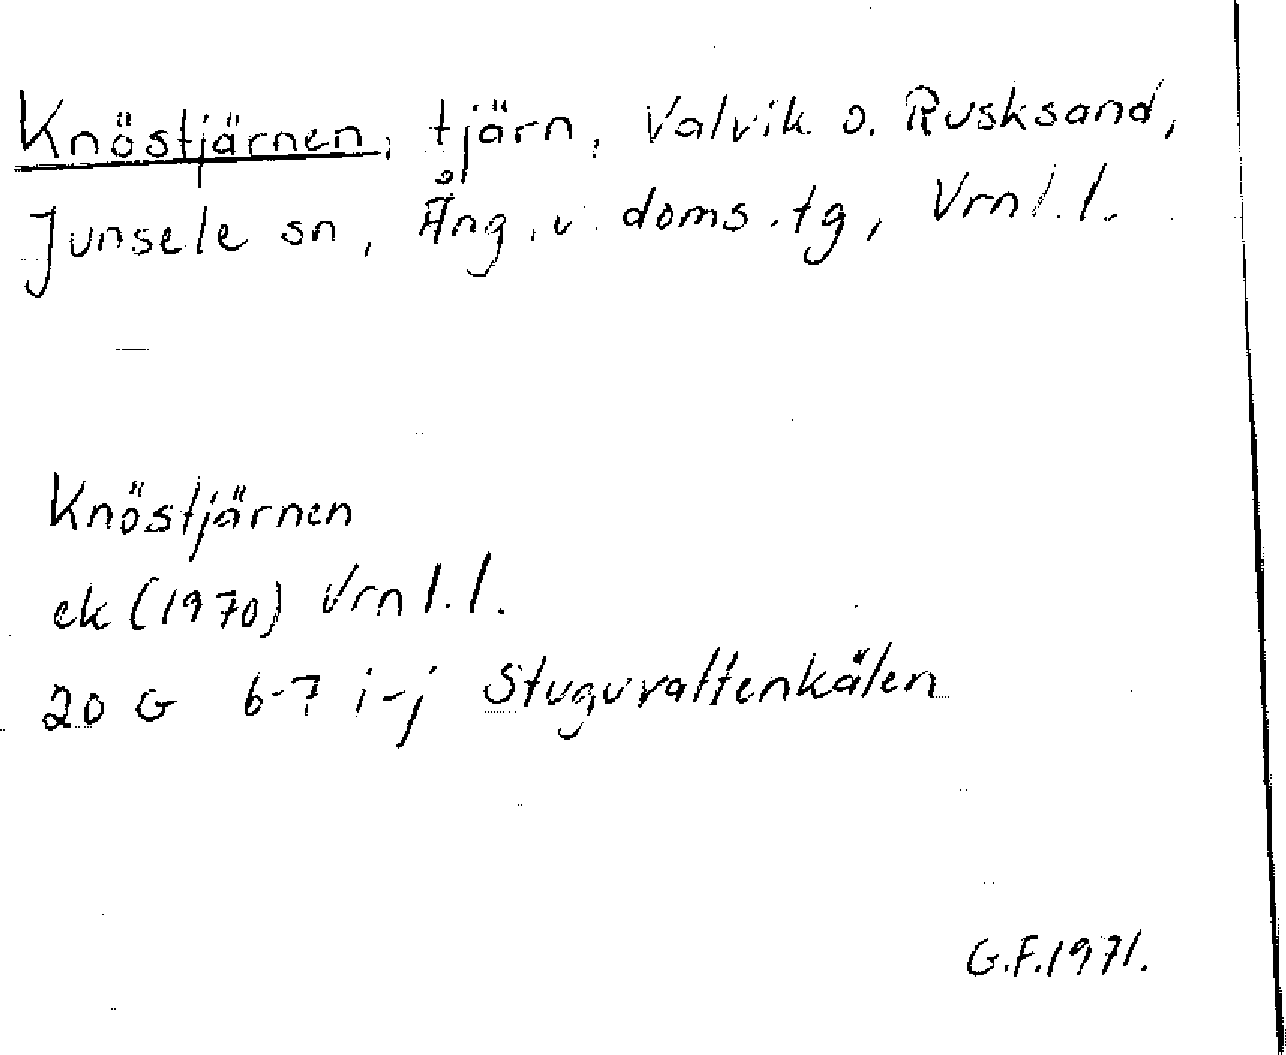 Knöstjärnen, tjärn, Valvik o. Rusksand,
Junsele sn, Ång. v. doms. tg, Vrnl. l.
Knöstjärnen
ek (1970) Vrnl. l.
20 G 6-7 i-j Stuguvattenkälen
G.F. 1971.